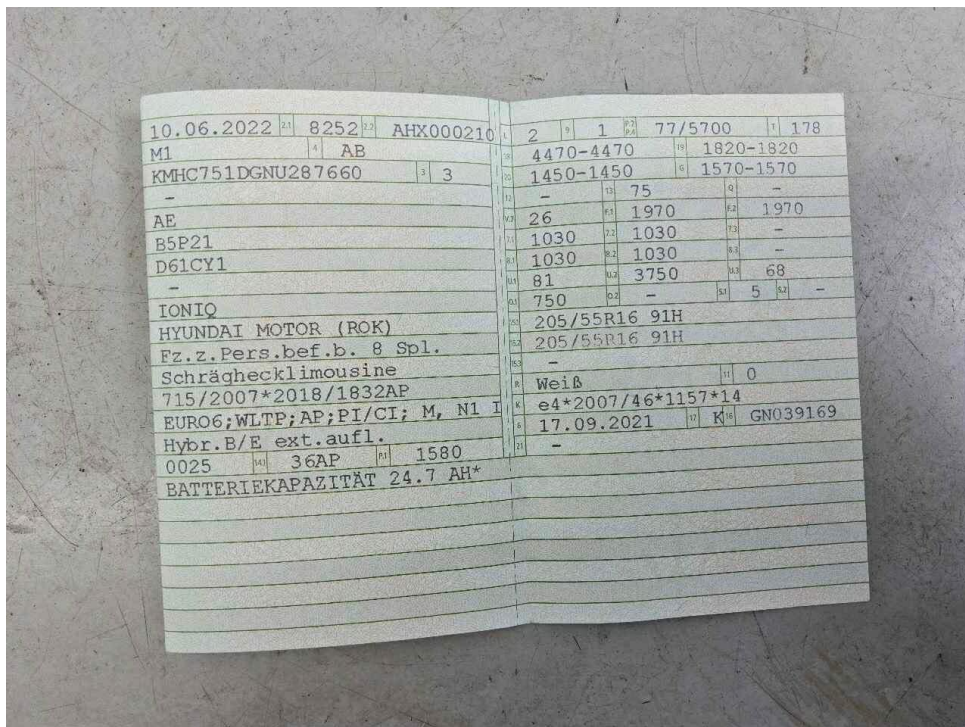 10.06.2022 2.1 8252 2.2 AHX000210
M1 4 AB
KMHC751DGNU287660 3 3
-
AE
B5P21
D61CY1
-
IONIQ
HYUNDAI MOTOR (ROK)
Fz.z.Pers.bef.b. 8 Spl.
Schräghecklimousine
715/2007*2018/1832AP
EURO6;WLTP;AP;PI/CI; M, N1 I
Hybr.B/E ext.aufl.
0025 14.1 36AP P.1 1580
BATTERIEKAPAZITÄT 24.7 AH*
L 2 9 1 P.2 P.4 77/5700 T 178
18 4470-4470 19 1820-1820
20 1450-1450 G 1570-1570
12 - 13 75 Q -
V.7 26 F.1 1970 F.2 1970
7.1 1030 7.2 1030 7.3 -
8.1 1030 8.2 1030 8.3 -
U.1 81 U.2 3750 U.3 68
O.1 750 O.2 - S.1 5 S.2 -
15.1 205/55R16 91H
15.2 205/55R16 91H
15.3 -
R Weiß 11 0
K e4*2007/46*1157*14
6 17.09.2021 17 K 16 GN039169
21 -